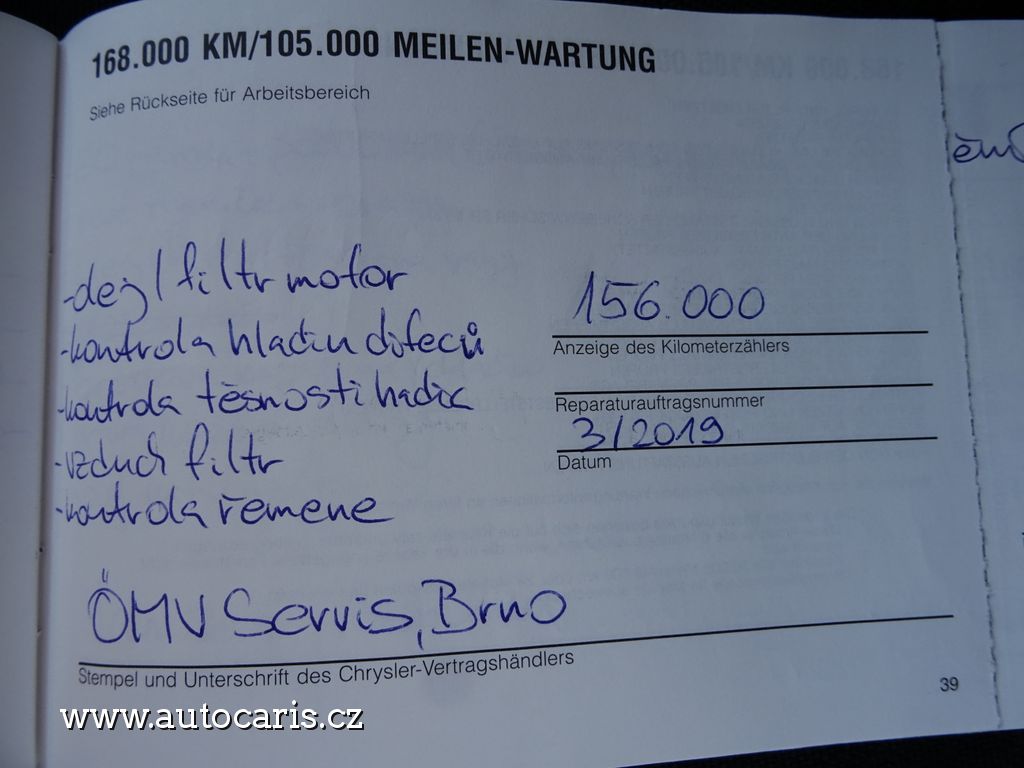 168.000 KM/105.000 MEILEN-WARTUNG
Siehe Rückseite für Arbeitsbereich
-olej/filtr motor
-kontrola hladin difeců
-kontrola těsnosti hadic
-vzduch filtr
-kontrola řemene
156.000
Anzeige des Kilometerzählers
Reparaturauftragsnummer
3/2019
Datum
ÖMV Servis, Brno
Stempel und Unterschrift des Chrysler-Vertragshändlers
39
www.autocaris.cz